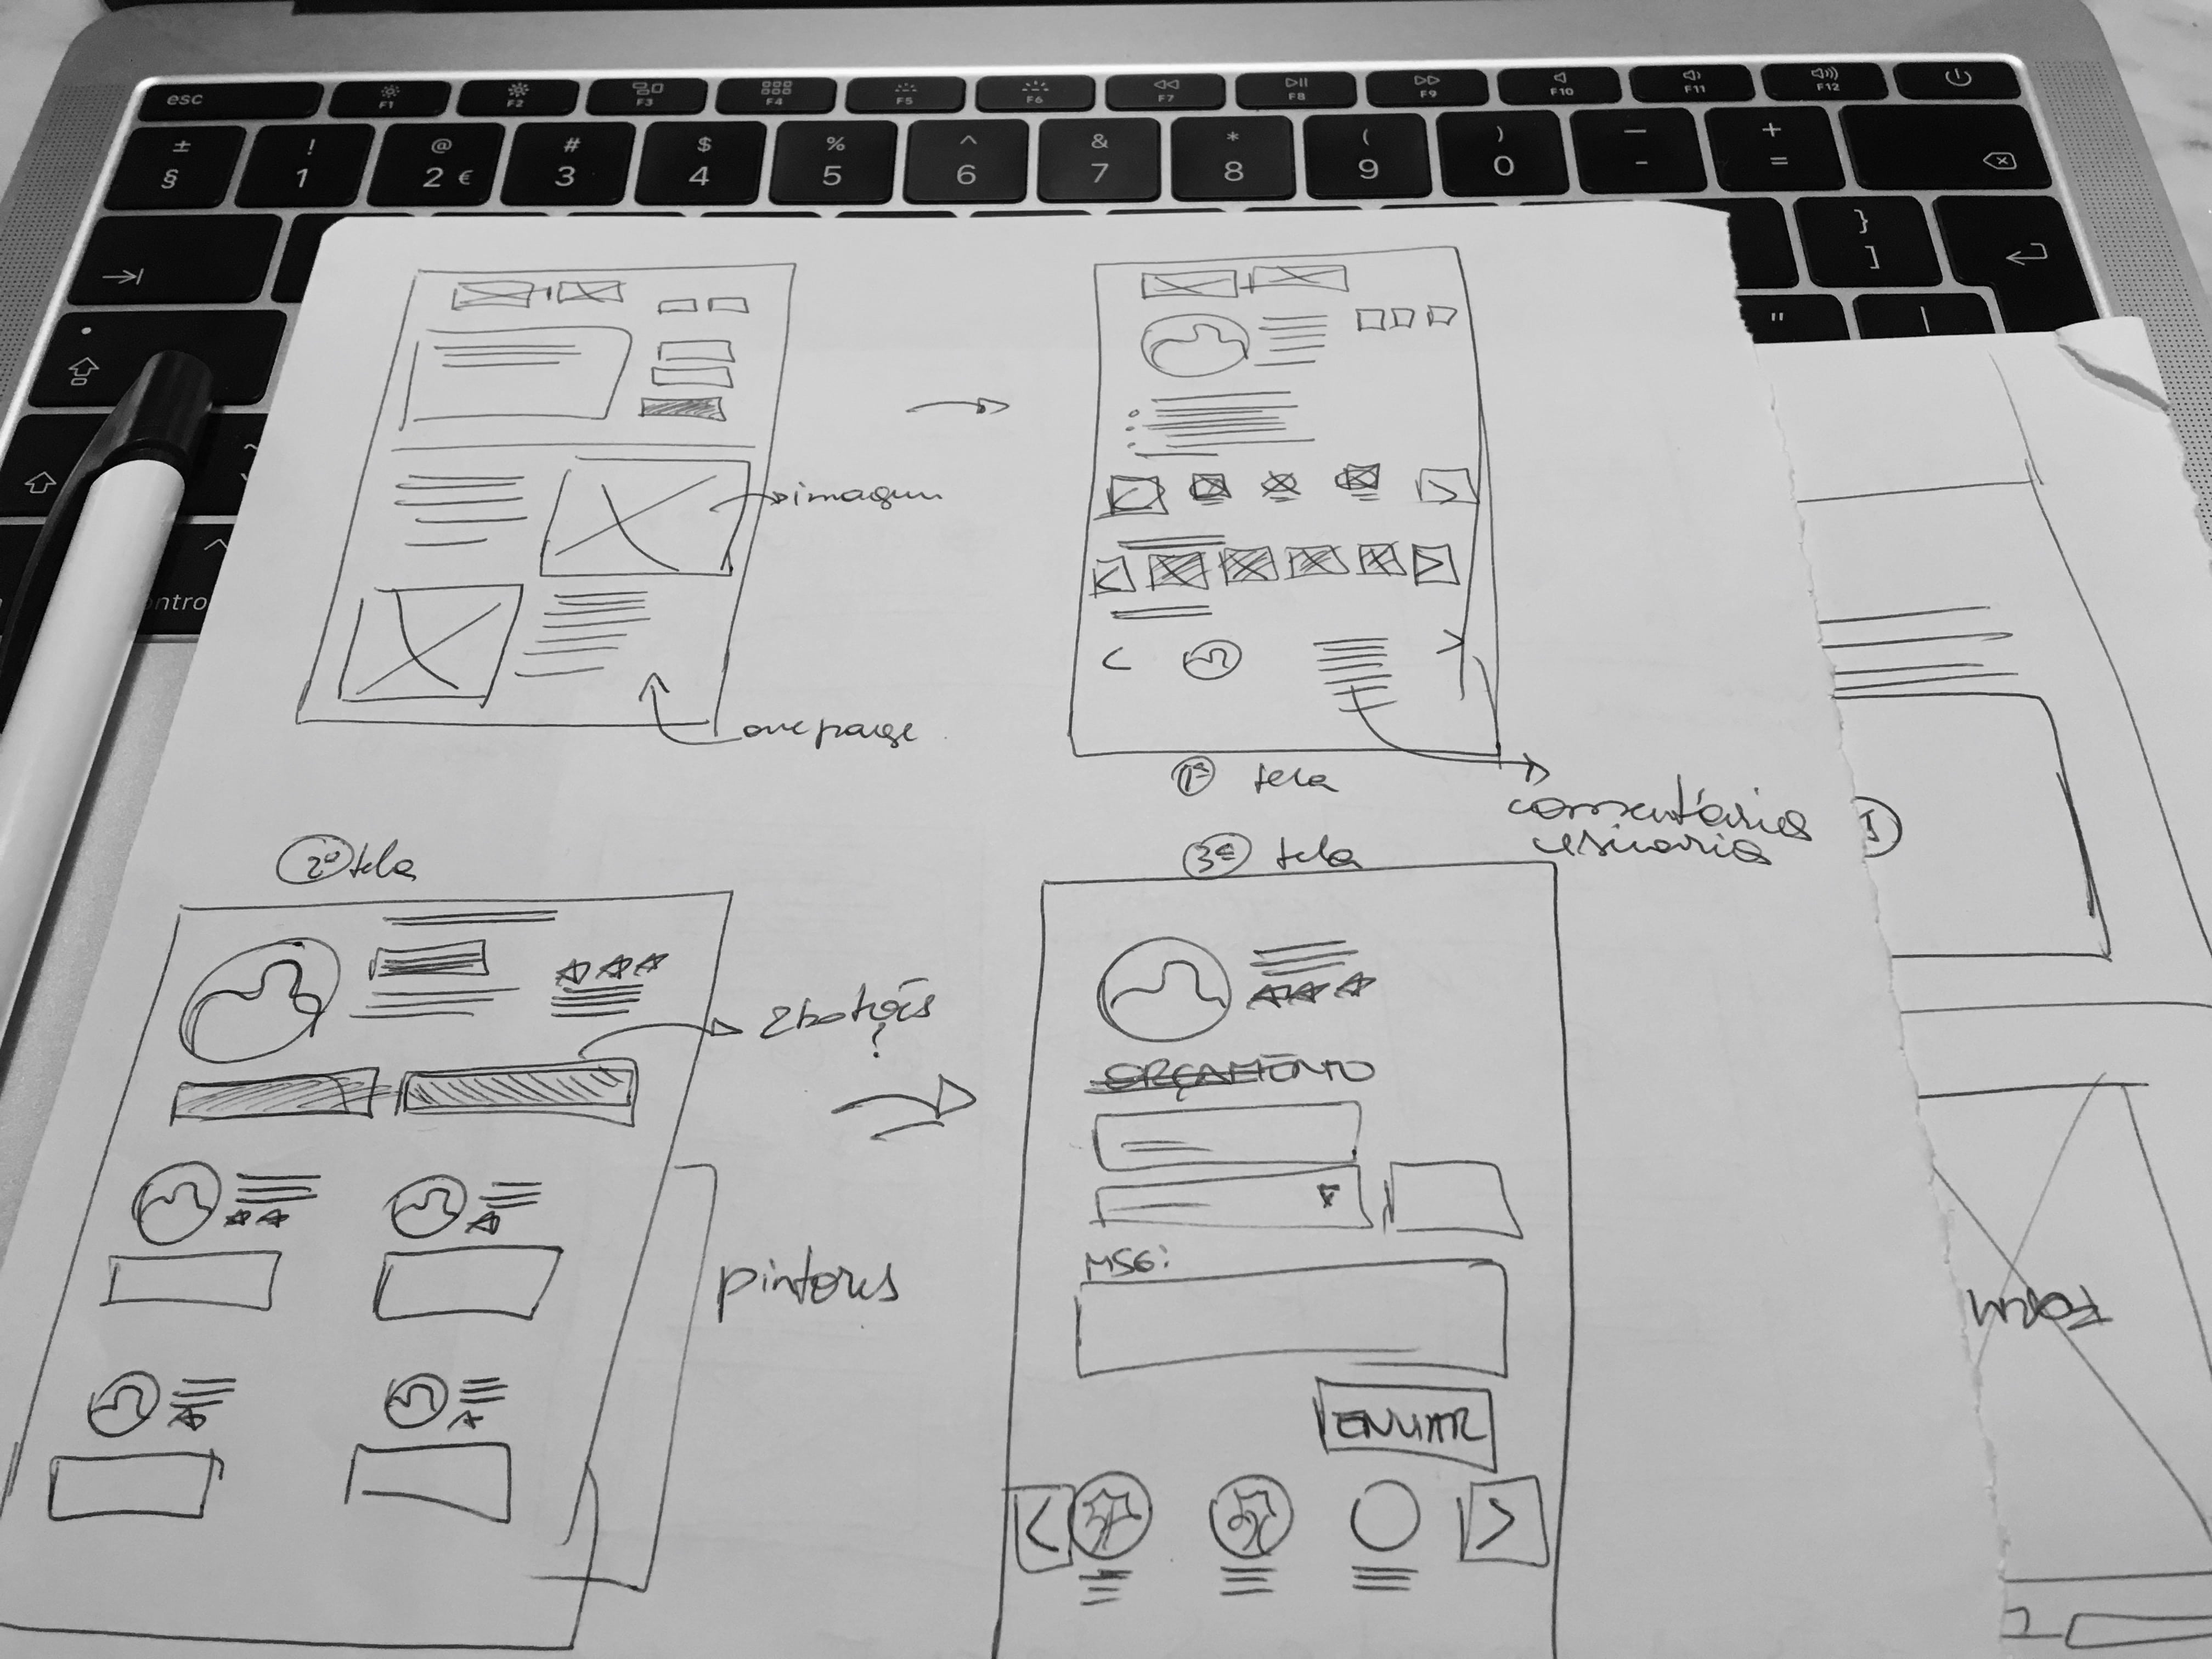 esc
F1
F2
F3
F4
F5
F6
F7
F8
F9
F10
F11
F12
± ! @ # $ % ^ & * ( ) — +
§ 1 2 € 3 4 5 6 7 8 9 0 - =
}
]
"
ontro
imagem
one page
1ª tela
comentários
usuario
2ª tela
3ª tela
2 botões
?
ORÇAMENTO
MSG:
pintores
ENVIAR
1
Form